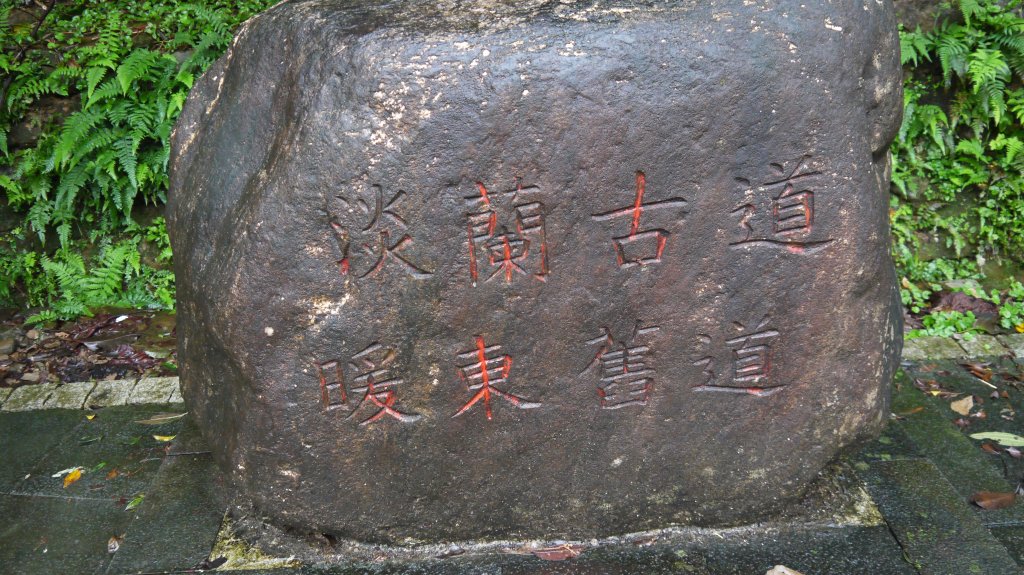 淡蘭古道
暖東舊道